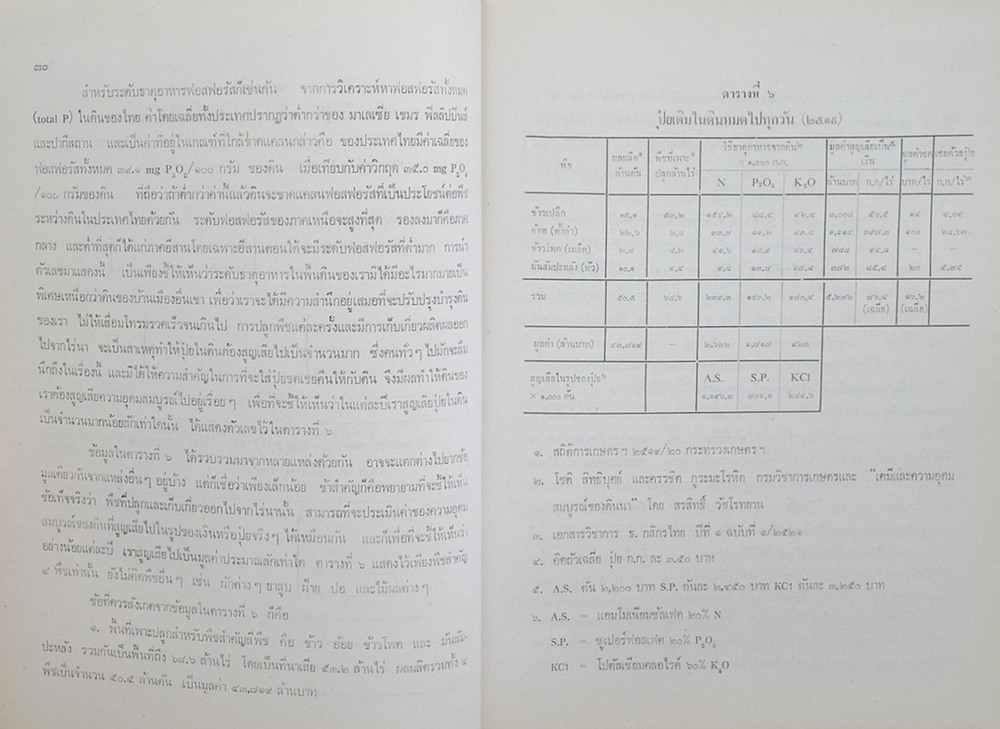 ๓๐
สำหรับระดับธาตุอาหารฟอสฟอรัสก็เช่นกัน จากการวิเคราะห์หาฟอสฟอรัสทั้งหมด
(total P) ในดินของไทย ค่าโดยเฉลี่ยทั้งประเทศปรากฏว่าต่ำกว่าของ มาเลเซีย เขมร ฟิลลิปปีนส์
และปากีสถาน และเป็นค่าที่อยู่ในเกณฑ์ที่ใกล้ขาดแคลนกล่าวคือ ของประเทศไทยมีค่าเฉลี่ยของ
ฟอสฟอรัสทั้งหมด ๓๙.๑ mg P₂O₅/๑๐๐ กรัม ของดิน เมื่อเทียบกับค่าวิกฤต ๓๕.๐ mg P₂O₅
/๑๐๐ กรัมของดิน ที่ถือว่าถ้าต่ำกว่าค่านี้แล้วดินจะขาดแคลนฟอสฟอรัสที่เป็นประโยชน์ต่อพืช
ระหว่างดินในประเทศไทยด้วยกัน ระดับฟอสฟอรัสของภาคเหนือจะสูงที่สุด รองลงมาก็คือภาค
กลาง และต่ำที่สุดก็ได้แก่ภาคอีสานโดยเฉพาะอีสานตอนใต้จะมีระดับฟอสฟอรัสที่ต่ำมาก การนำ
ตัวเลขมาแสดงนี้ เป็นเพียงชี้ให้เห็นว่าระดับธาตุอาหารในพื้นดินของเรามิได้มีอะไรมากมายเป็น
พิเศษเหนือกว่าดินของบ้านเมืองอื่นเขา เพื่อว่าเราจะได้มีความสำนึกอยู่เสมอที่จะปรับปรุงบำรุงดิน
ของเรา ไม่ให้เสื่อมโทรมรวดเร็วจนเกินไป การปลูกพืชแต่ละครั้งและมีการเก็บเกี่ยวผลิตผลออก
ไปจากไร่นา จะเป็นสาเหตุทำให้ปุ๋ยในดินต้องสูญเสียไปเป็นจำนวนมาก ซึ่งคนทั่วๆ ไปมักจะลืม
นึกถึงในเรื่องนี้ และมิได้ให้ความสำคัญในการที่จะใส่ปุ๋ยชดเชยคืนให้กับดิน จึงมีผลทำให้ดินของ
เราต้องสูญเสียความอุดมสมบูรณ์ไปอยู่เรื่อยๆ เพื่อที่จะชี้ให้เห็นว่าในแต่ละปีเราสูญเสียปุ๋ยในดิน
เป็นจำนวนมากน้อยสักเท่าใดนั้น ได้แสดงตัวเลขไว้ในตารางที่ ๖
ข้อมูลในตารางที่ ๖ ได้รวบรวมมาจากหลายแหล่งด้วยกัน อาจจะแตกต่างไปยากข้อ
มูลเดียวกันจากแหล่งอื่นๆ อยู่บ้าง แต่ก็เชื่อว่าเพียงเล็กน้อย ข้าสำคัญก็คือพยายามที่จะชี้ให้เห็น
ข้อเท็จจริงว่า พืชที่ปลูกและเก็บเกี่ยวออกไปจากไร่นานั้น สามารถที่จะประเมินค่าของความอุดม
สมบูรณ์ของดินที่สูญเสียไปในรูปของเงินหรือปุ๋ยจริงๆ ได้เหมือนกัน และก็เพื่อที่จะชี้ให้เห็นว่า
อย่างน้อยแต่ละปี เราสูญเสียไปเป็นมูลค่าประมาณสักเท่าใด ตารางที่ ๖ แสดงไว้เพียงพืชสำคัญ
๔ พืชเท่านั้น ยังไม่คิดพืชอื่นๆ เช่น ผักต่างๆ ยาสูบ ฝ้าย ปอ และไม้ผลต่างๆ
ข้อที่ควรสังเกตจากข้อมูลในตารางที่ ๖ ก็คือ
๑. พื้นที่เพาะปลูกสำหรับพืชสำคัญสี่พืช คือ ข้าว อ้อย ข้าวโพด และ มันสัม-
ปะหลัง รวมกันเป็นพื้นที่ถึง ๖๘.๖ ล้านไร่ โดยเป็นที่นาเสีย ๕๓.๒ ล้านไร่ ผลผลิตรวมทั้ง ๔
พืชเป็นจำนวน ๕๐.๕ ล้านตัน เป็นมูลค่า ๔๓,๗๑๙ ล้านบาท
ตารางที่ ๖
ปุ๋ยเดิมในดินหมดไปทุกวัน (๒๕๑๘)
พืช ผลผลิต๑ ล้านตัน พืชที่เพาะ๑ ปลูกล้านไร่ ใช้ธาตุอาหารจากดิน๒ × ๑,๐๐๐ ก.ก. มูลค่าสูญเสียเป็น๕ เงิน มูลค่าชดเชยด้วยปุ๋ย
N P₂O₅ K₂O ล้านบาท ก.ก/ไร่ บาท/ไร่ ก.ก/ไร่๓
ข้าวเปลือก ๑๕,๑ ๕๓,๒ ๑๕๔,๒ ๘๔,๔ ๔๒,๔ ๓,๐๐๘ ๕๖,๕ ๑๔ ๔,๐๔
อ้อย (ทั้งลำ) ๒๒,๖ ๒,๘ ๓๓,๗ ๑๙,๒ ๔๓,๘ ๑๐๐ ๒๘,๖๓
ข้าวโพด (เมล็ด) ๒,๗ ๘,๒ ๗๘๘ — —
มันสัมปะหลัง (หัว) ๑๐,๑ ๔,๔ ๙,๘ ๓๗๒ ๘๕,๔ ๒๐ ๕,๗๕
รวม ๕๐,๕ ๖๘,๖ ๒๓๙,๓ ๑๔๐,๒ ๑๗๐,๔ ๕,๒๗๒ ๗๖,๘ (เฉลี่ย) ๑๖,๒ (เฉลี่ย)
มูลค่า (ล้านบาท) ๔๓,๗๑๙ — ๒,๖๓๒ ๑,๗๑๗
สูญเสียในรูปของปุ๋ย๖ A.S. S.P. KCl
× ๑,๐๐๐ ตัน ๑,๑๙๖,๓ ๗๐๑,๑ ๒๘๔,๖
๑. สถิติการเกษตรฯ ๒๕๑๙/๒๐ กระทรวงเกษตรฯ
๒. โชติ สิทธิบุศย์ และครรชิต กุระมะโรหิต กรมวิชาการเกษตรและ "เคมีและความอุดม
สมบูรณ์ของดินนา" โดย สรสิทธิ์ วัชโรทยาน
๓. เอกสารวิชาการ ธ. กสิกรไทย ปีที่ ๑ ฉบับที่ ๑/๒๕๒๑
๔. คิดถัวเฉลี่ย ปุ๋ย ก.ก. ละ ๓.๕๐ บาท
๕. A.S. ตัน ๒,๒๐๐ บาท S.P. ตันละ ๒,๔๕๐ บาท KCl ตันละ ๓,๒๕๐ บาท
๖. A.S. = แอมโมเนียมซัลเฟต ๒๐% N
S.P. = ซูเปอร์ฟอสเฟต ๒๐% P₂O₅
KCl = โปตัสเซียมคลอไรด์ ๖๐% K₂O